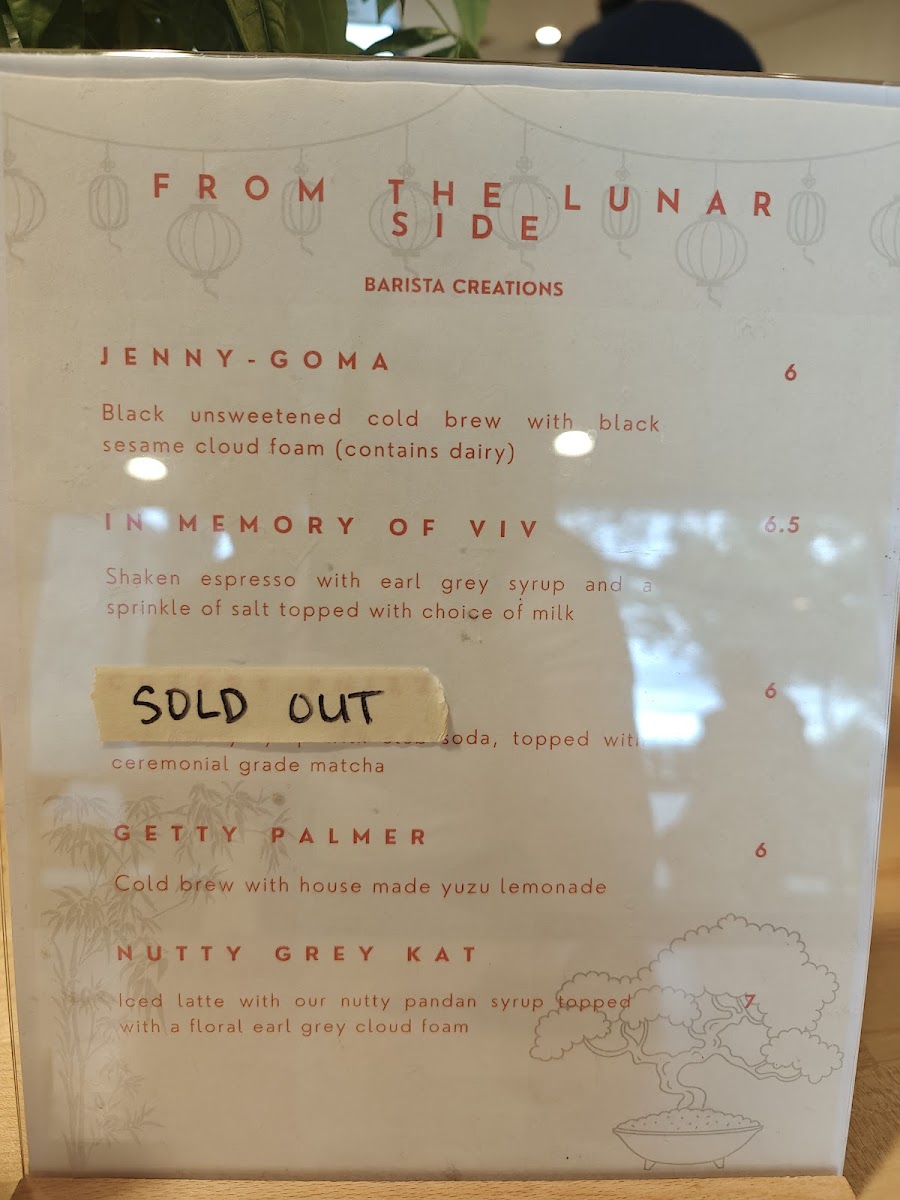 FROM THE LUNAR
SIDE
BARISTA CREATIONS
JENNY-GOMA 6
Black unsweetened cold brew with black
sesame cloud foam (contains dairy)
IN MEMORY OF VIV 6.5
Shaken espresso with earl grey syrup and a
sprinkle of salt topped with choice of milk
SOLD OUT 6
soda, topped with
ceremonial grade matcha
GETTY PALMER 6
Cold brew with house made yuzu lemonade
NUTTY GREY KAT
Iced latte with our nutty pandan syrup topped 7
with a floral earl grey cloud foam